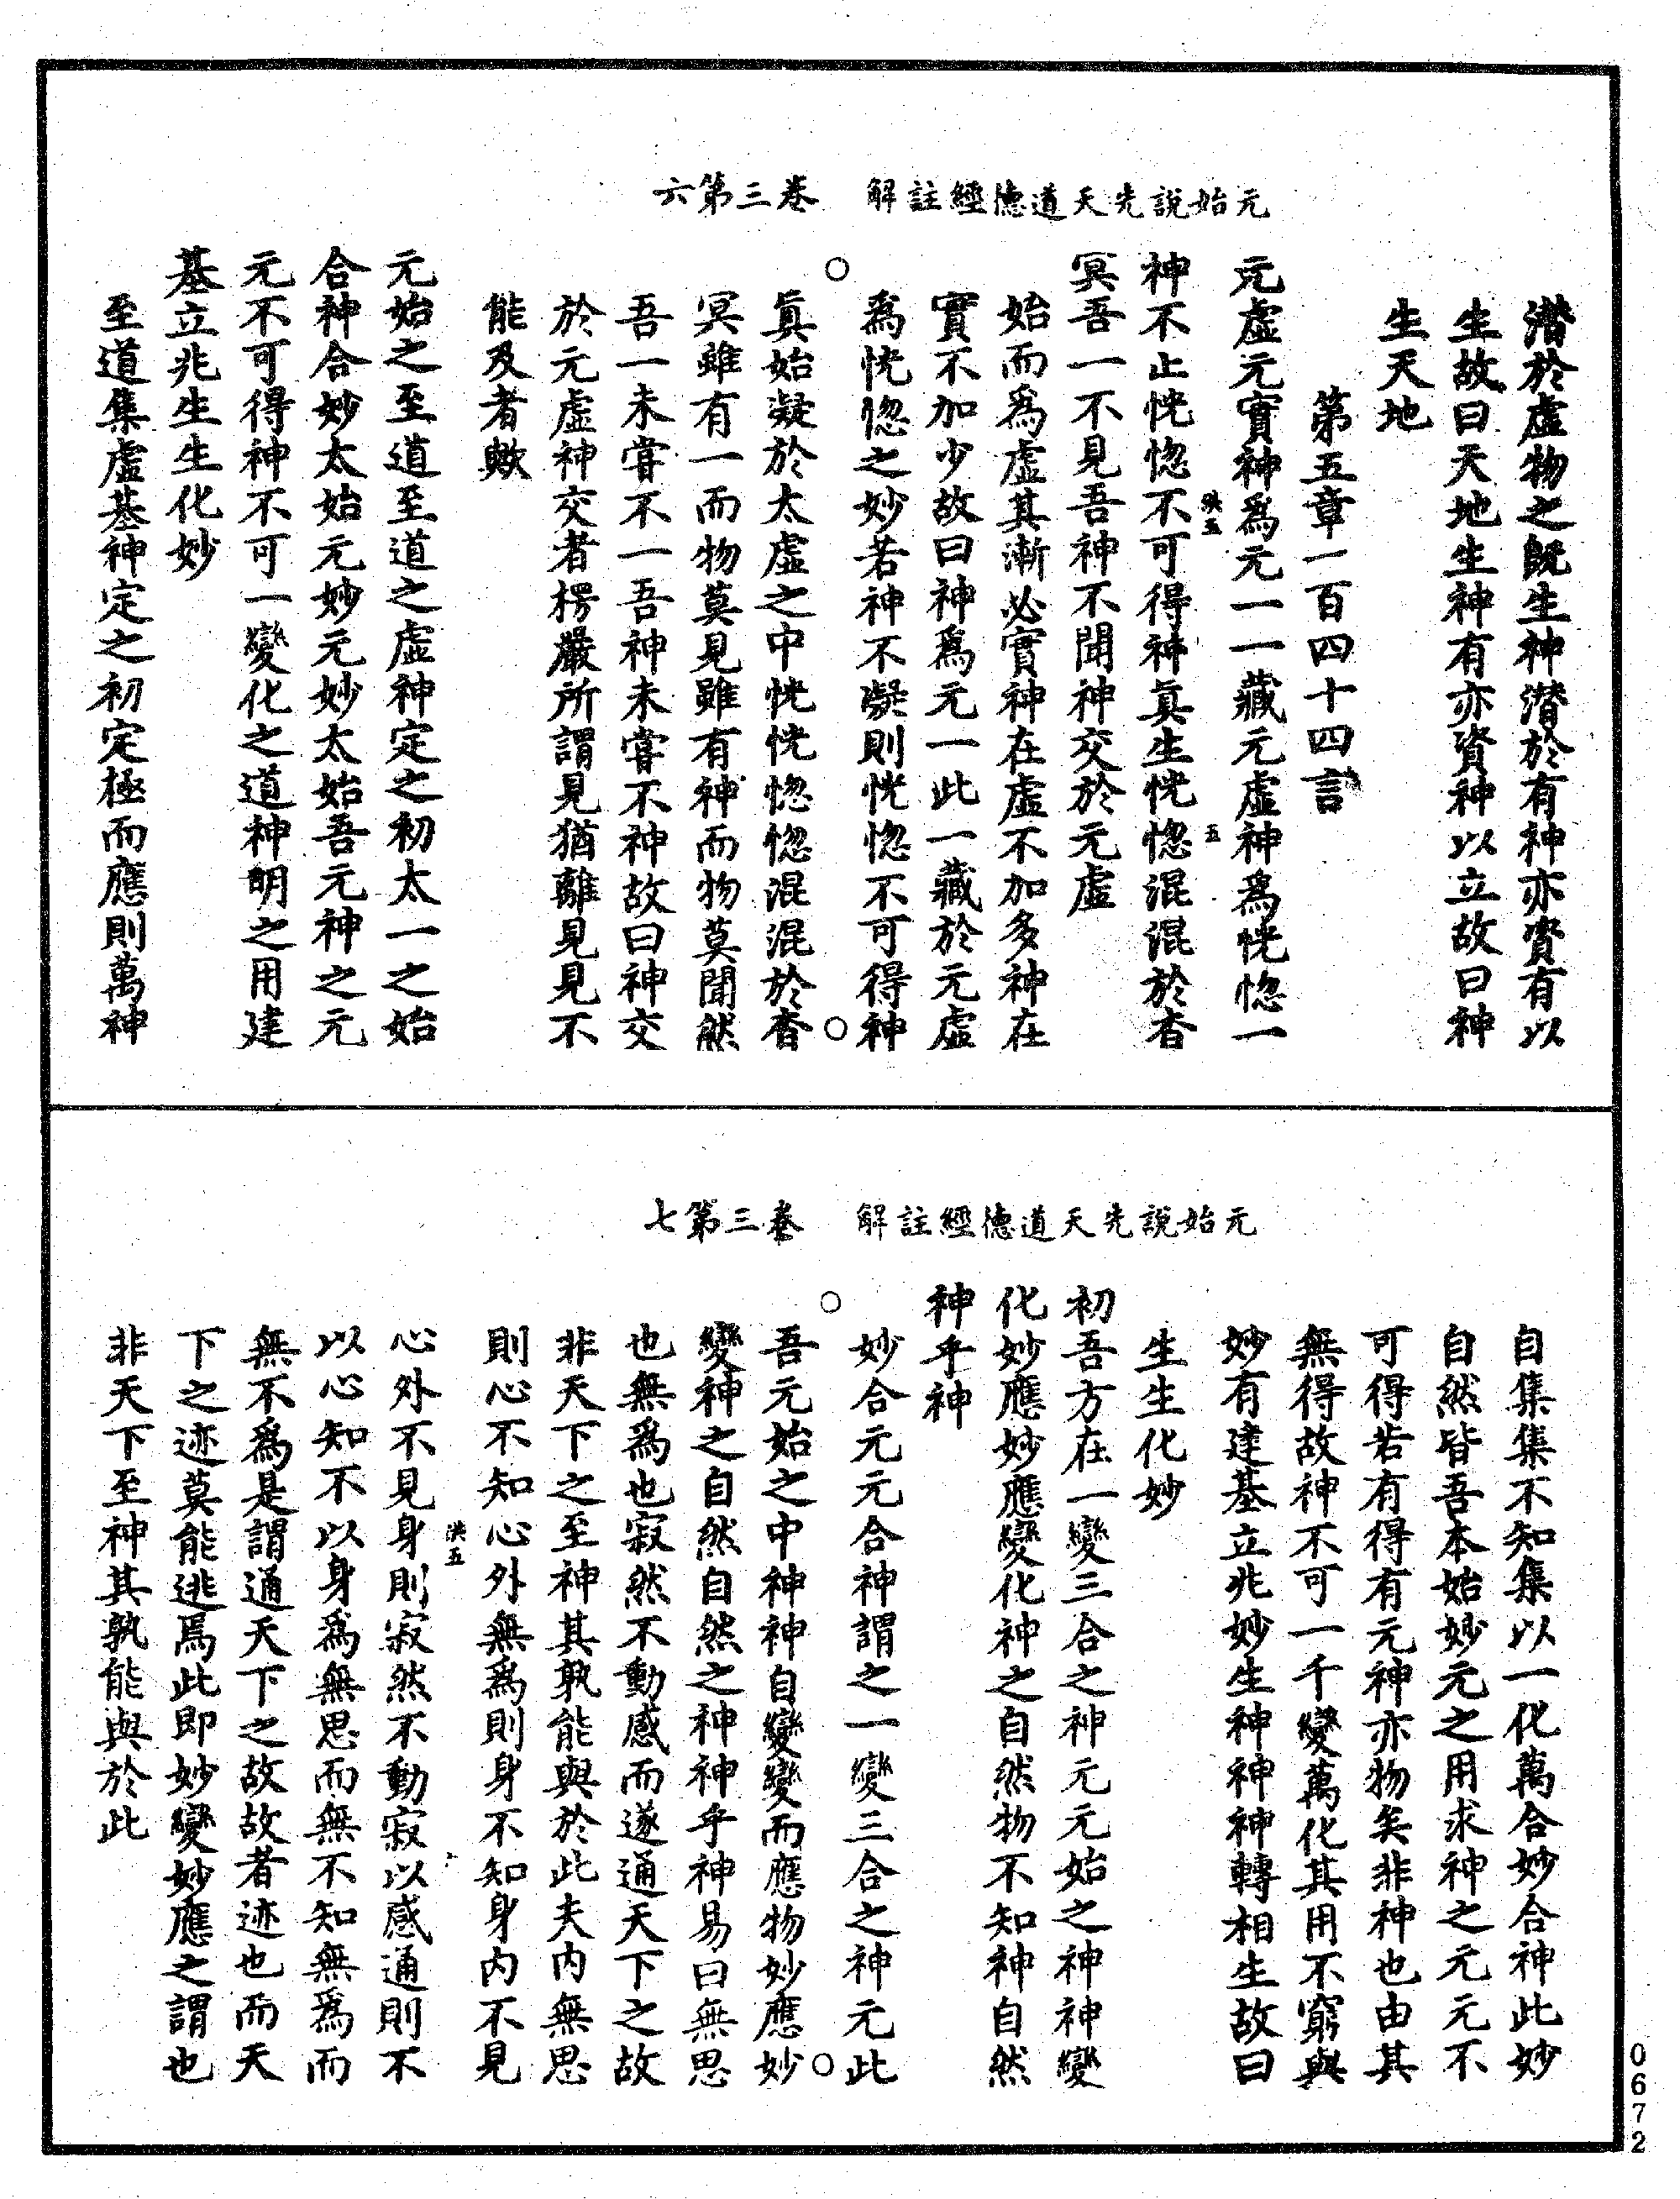 元始說先天道德經註解　卷三第六
潛於虛物之旣生神潛於有神亦資有以
生故曰天地生神有亦資神以立故曰神
生天地
第五章一百四十四言
元虛元實神爲元一一藏元虛神爲恍惚一
洪五
五
神不止恍惚不可得神眞生恍惚混混於杳
冥吾一不見吾神不聞神交於元虛
始而爲虛其漸必實神在虛不加多神在
實不加少故曰神爲元一此一藏於元虛
爲恍惚之妙若神不凝則恍惚不可得神
○　○
眞始凝於太虛之中恍恍惚惚混混於杳
冥雖有一而物莫見雖有神而物莫聞然
吾一未嘗不一吾神未嘗不神故曰神交
於元虛神交者楞嚴所謂見猶離見見不
能及者歟
元始之至道至道之虛神定之初太一之始
合神合妙太始元妙元妙太始吾元神之元
元不可得神不可一變化之道神明之用建
基立兆生生化妙
至道集虛基神定之初定極而應則萬神
元始說先天道德經註解　卷三第七
自集集不知集以一化萬合妙合神此妙
自然皆吾本始妙元之用求神之元元不
可得若有得有元神亦物矣非神也由其
無得故神不可一千變萬化其用不窮與
妙有建基立兆妙生神神神轉相生故曰
生生化妙
初吾方在一變三合之神元元始之神神變
化妙應妙應變化神之自然物不知神自然
神乎神
妙合元元合神謂之一變三合之神元此
○　○
吾元始之中神神自變變而應物妙應妙
變神之自然自然之神神乎神易曰無思
也無爲也寂然不動感而遂通天下之故
非天下之至神其孰能與於此夫內無思
則心不知心外無爲則身不知身內不見
洪五
心外不見身則寂然不動寂以感通則不
以心知不以身爲無思而無不知無爲而
無不爲是謂通天下之故故者迹也而天
下之迹莫能逃焉此即妙變妙應之謂也
非天下至神其孰能與於此
0672